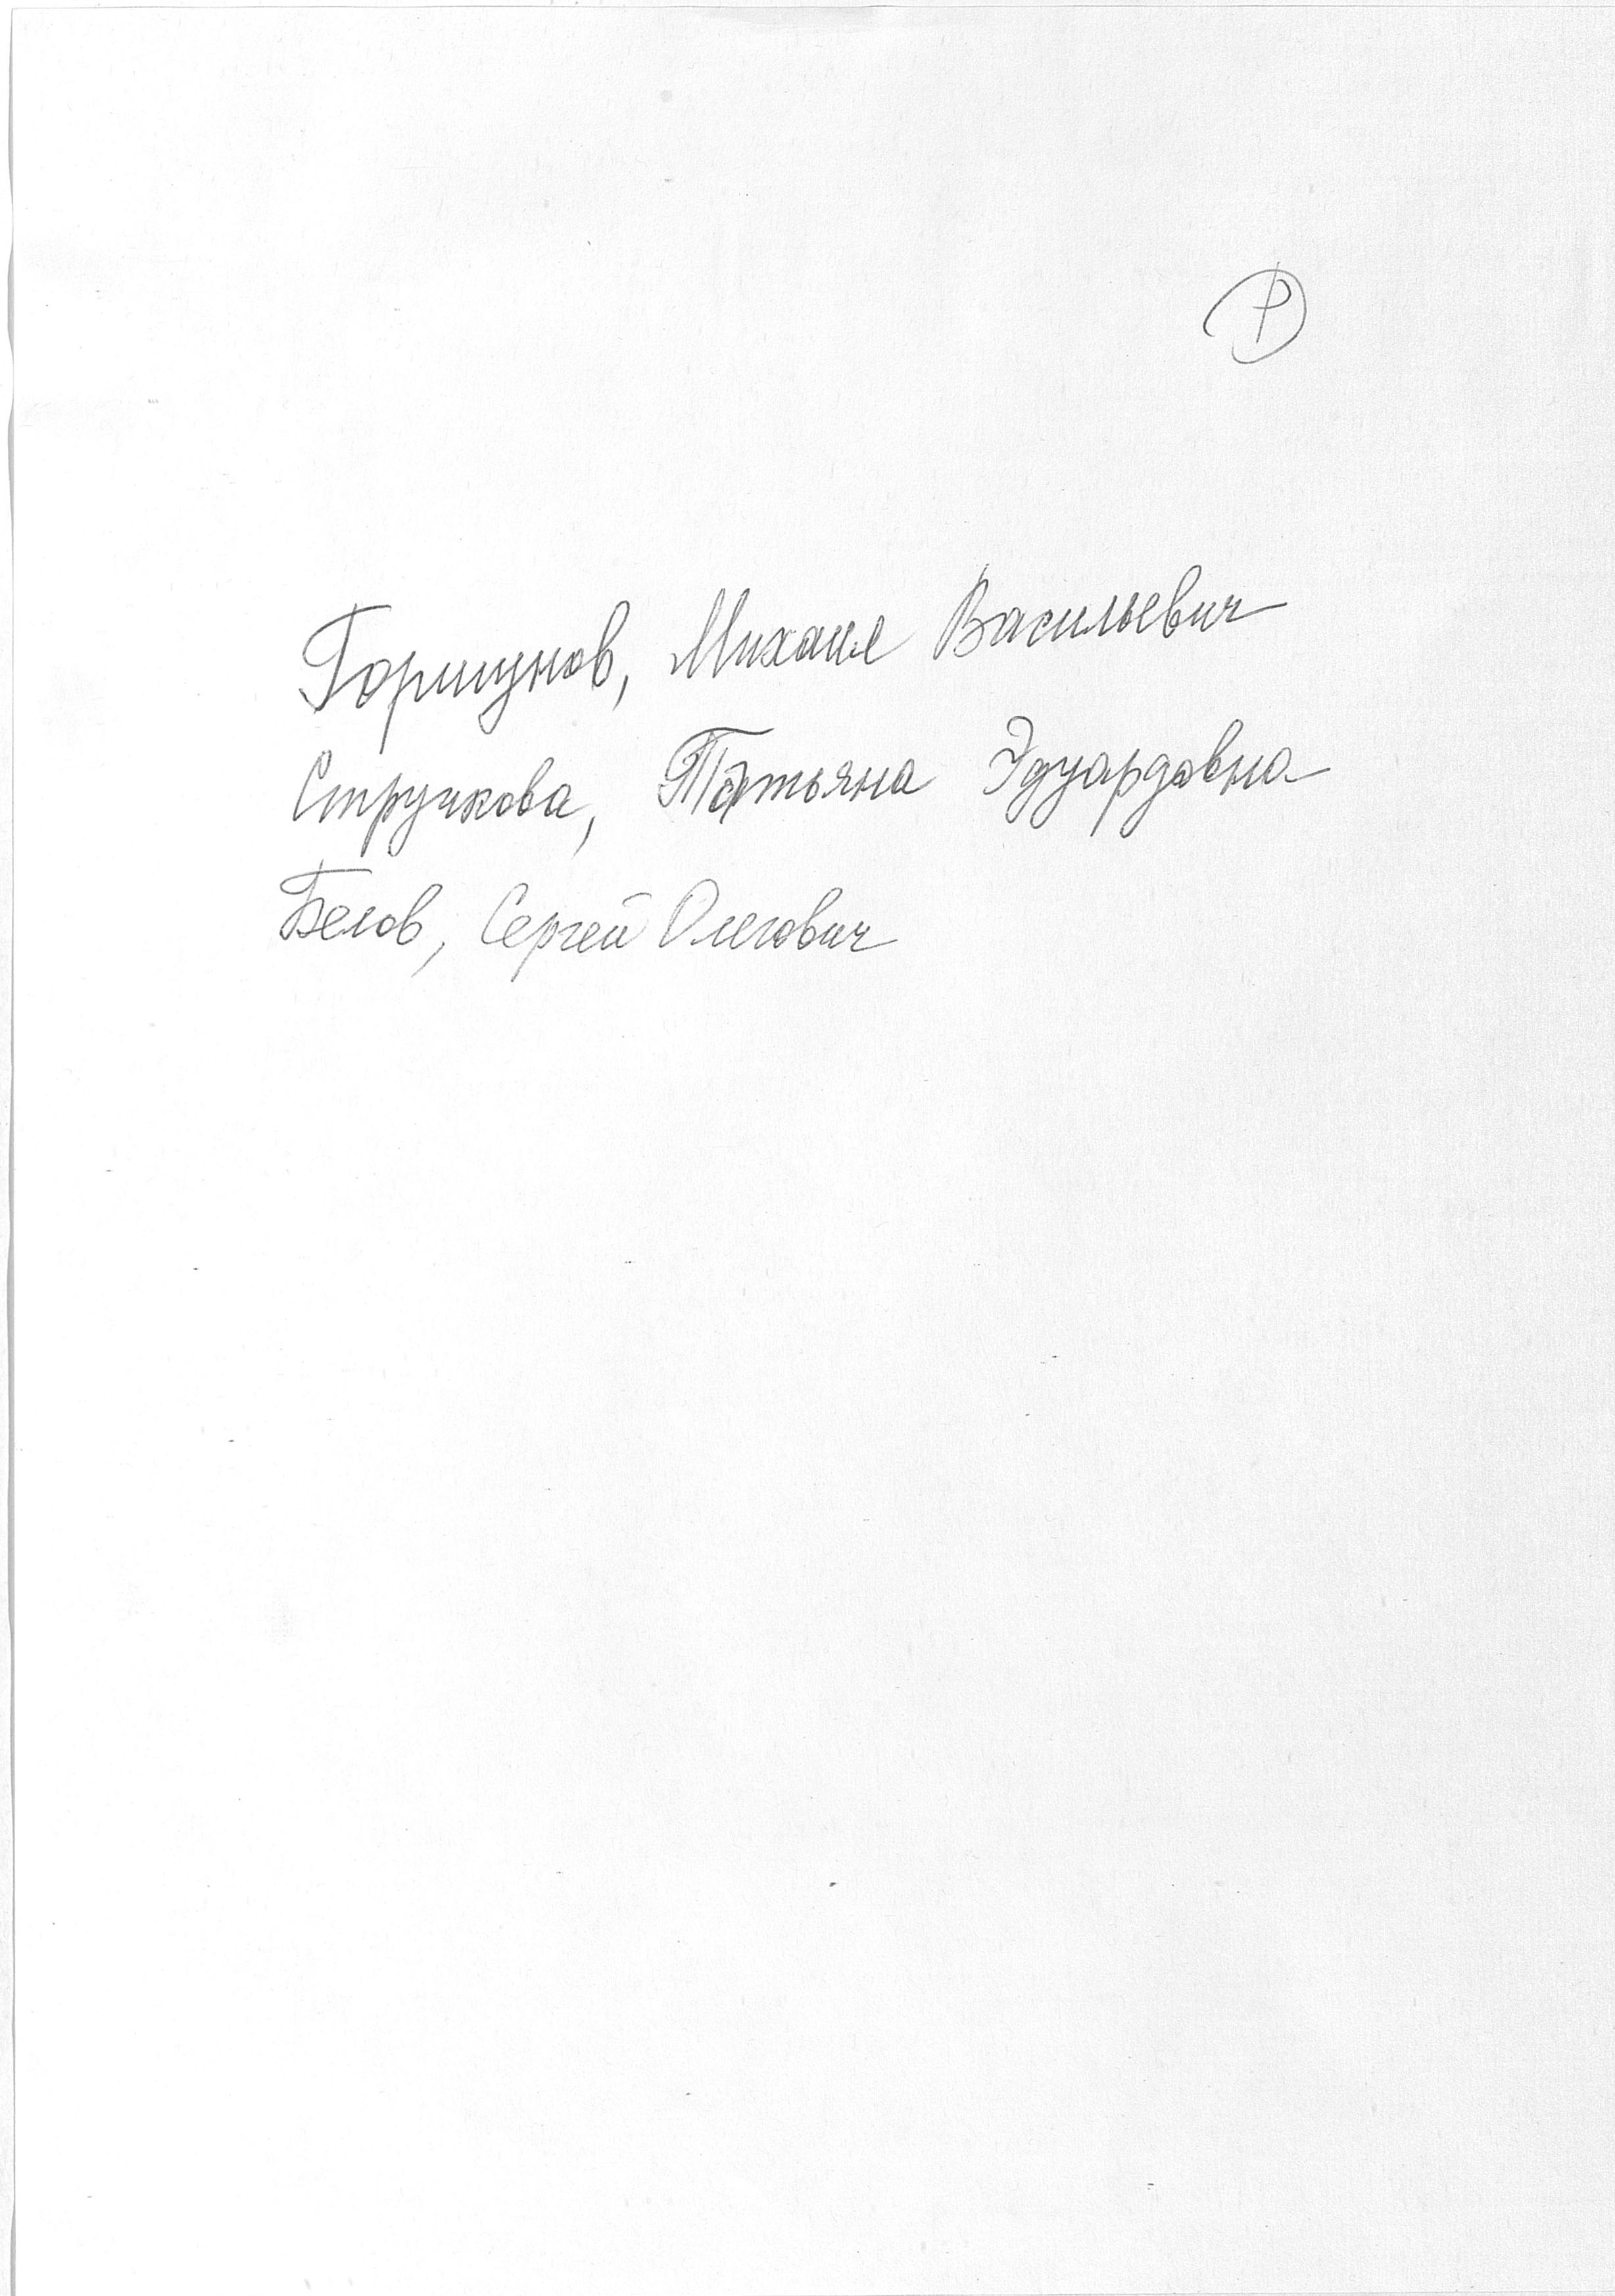 Р
Горшунов, Михаил Васильевич
Стручкова, Татьяна Эдуардовна
Белов, Сергей Олегович